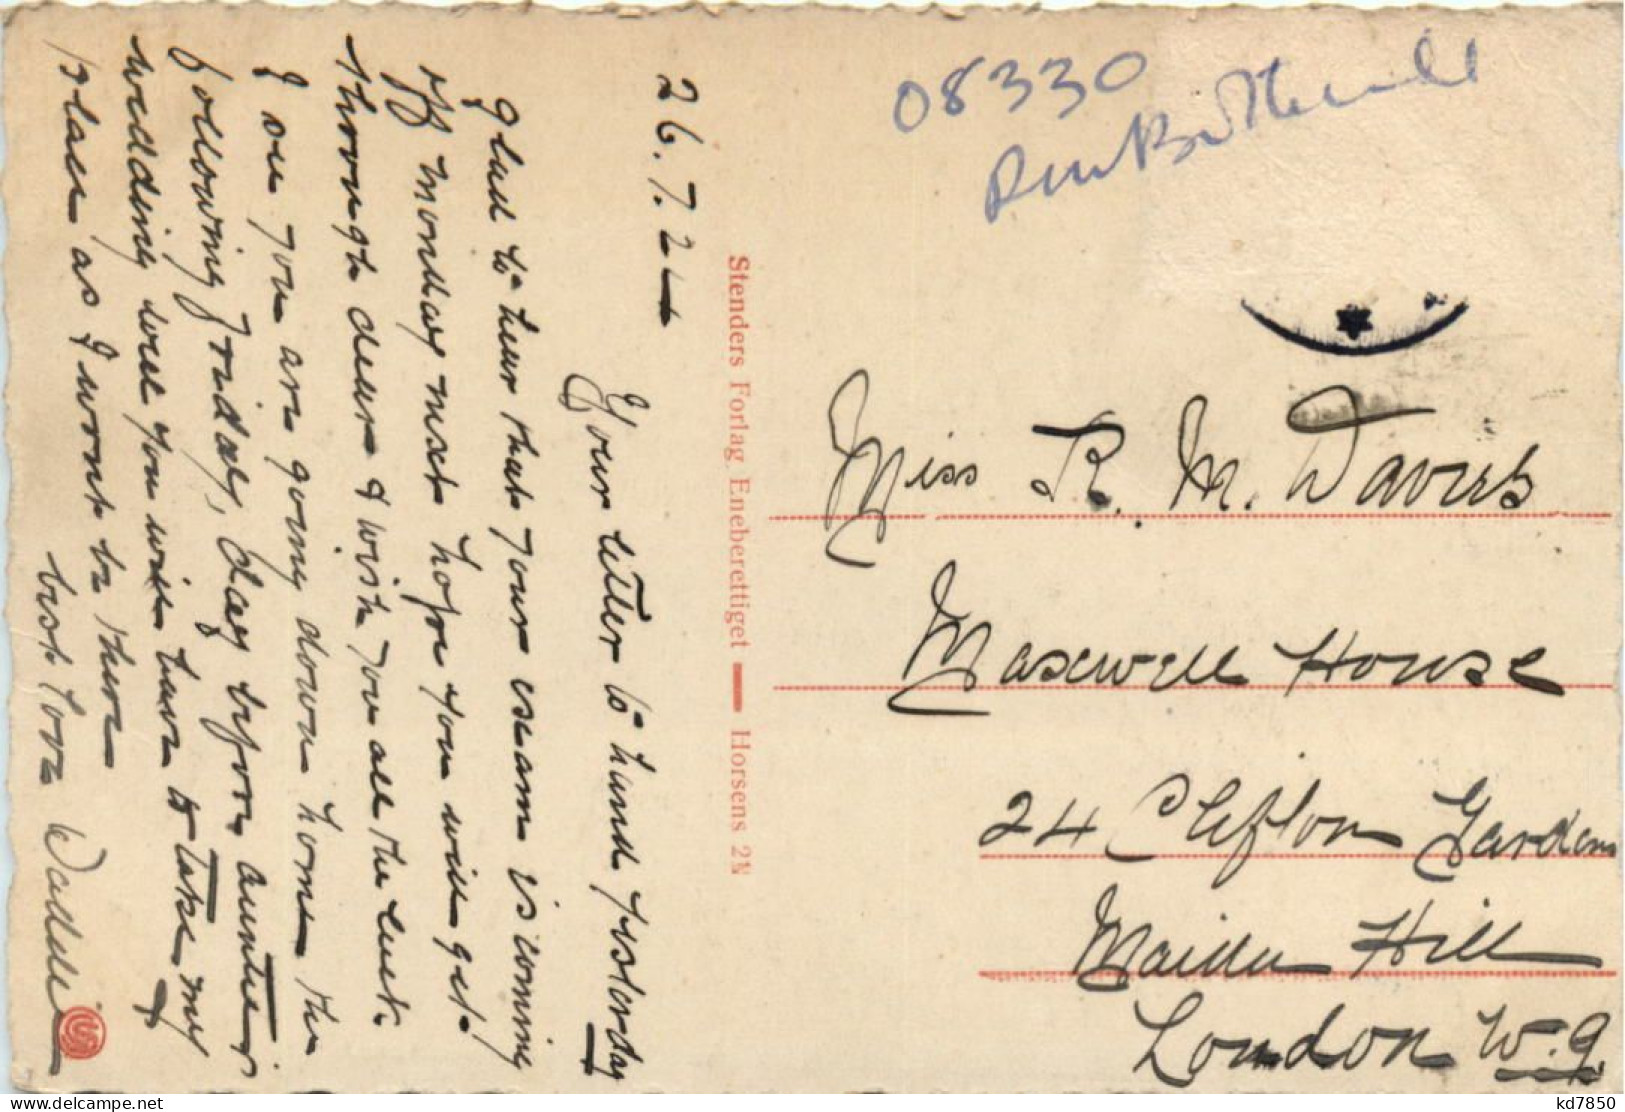 26.7.24
Your letter to hand yesterday
glad to hear that your exam is coming
off monday next hope you will get
through dear & wish you all the luck
I see you are going down home the
following Friday, day before auntie's
wedding well you will have to take my
place as I wont be there
best love
08330
Stenders Forlag Eneberettiget — Horsens
Miss R. M. Davies
Maxwell House
24 Clifton Gardens
Maida Hill
London W.9.
www.delcampe.net
kd7850